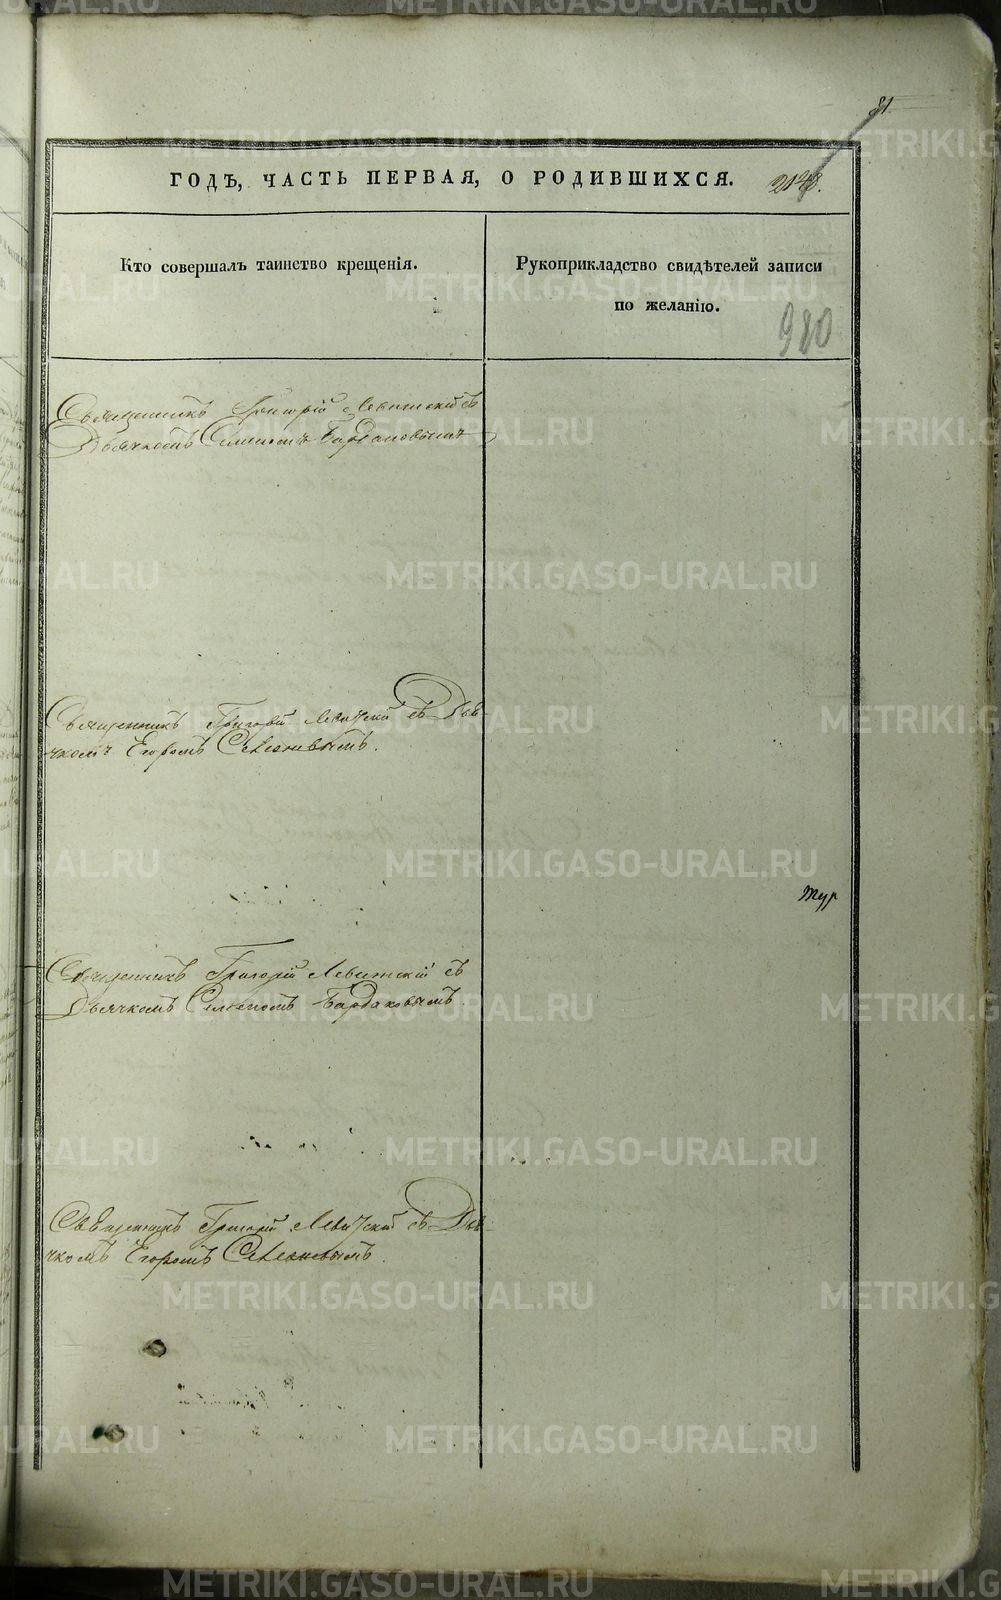 81
ГОДѢ, ЧАСТЬ ПЕРВАЯ, О РОДИВШИХСЯ.
Кто совершалъ таинство крещенія.
Рукоприкладство свидѣтелей записи
по желанію.
980
Священникъ Григорій Левитскій съ
Дьячкомъ Семеномъ Бардаковымъ
Священникъ Григорій Левитскій съ Дья
чкомъ Егоромъ
Священникъ Григорій Левитскій съ
Дьячкомъ Семеномъ Бардаковымъ
Священникъ Григорій Левитскій съ Дья
чкомъ Егоромъ
METRIKI.GASO-URAL.RU